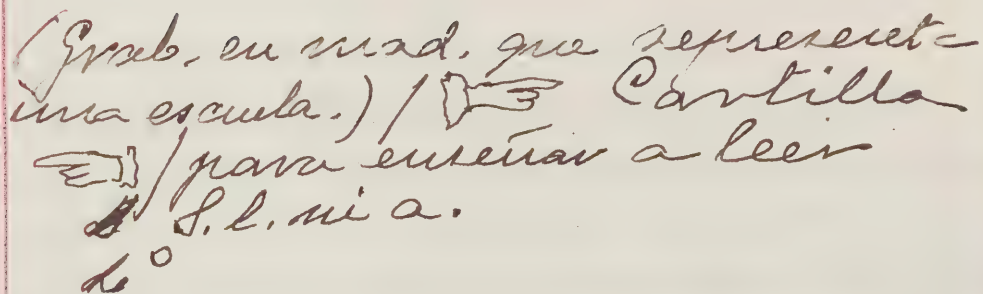 (Grab. en mad. que represent=
una escuela.) / ☞ Cartilla
☜ / para enseñar a leer
S. l. ni a.